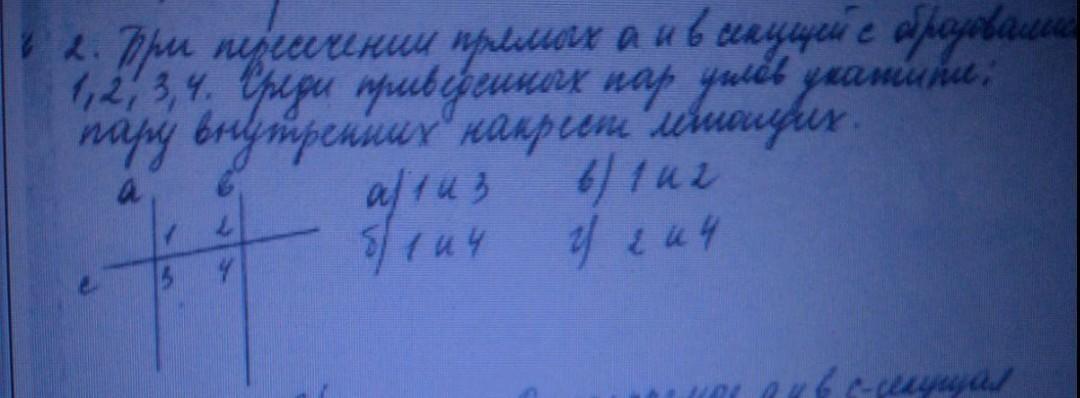 2. При пересечении прямых а и в секущей с образовались
1, 2, 3, 4. Среди приведенных пар углов укажите:
пару внутренних накрест лежащих.
а в
1 2
с 3 4
а) 1 и 3 в) 1 и 2
б) 1 и 4 г) 2 и 4
а и в с-секущая